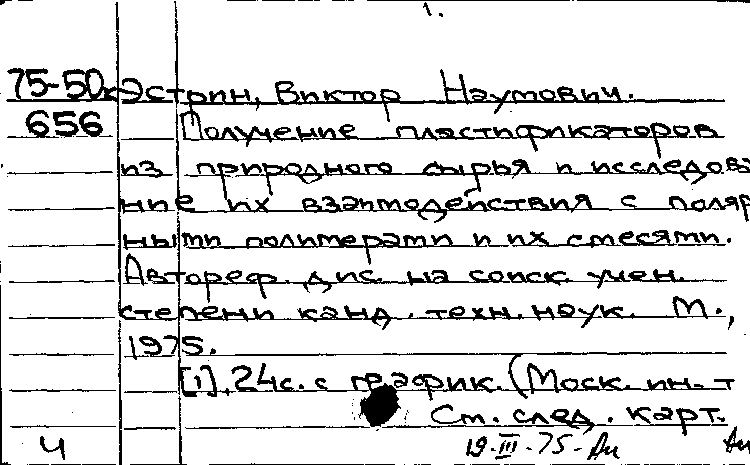 1.
75-50к Эстрин, Виктор Наумович.
656 Получение пластификаторов
из природного сырья и исследова
ние их взаимодействия с поляр
ными полимерами и их смесями.
Автореф. дис. на соиск. учен.
степени канд. техн. наук. М.,
1975.
[1], 24с. с график. (Моск. ин-т
См. след. карт.
Ч 19.III.75-